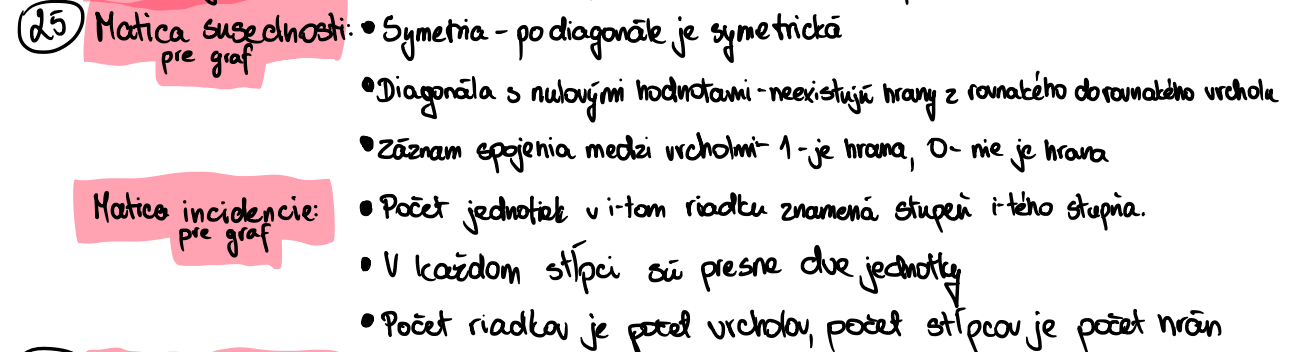 25 Matica susednosti: • Symetria - po diagonále je symetrická
pre graf
• Diagonála s nulovými hodnotami - neexistujú hrany z rovnakého do rovnakého vrcholu
• Záznam spojenia medzi vrcholmi - 1 - je hrana, 0 - nie je hrana
Matica incidencie: • Počet jednotiek v i-tom riadku znamená stupeň i-tého stupňa.
pre graf
• V každom stĺpci sú presne dve jednotky
• Počet riadkov je počet vrcholov, počet stĺpcov je počet hrán